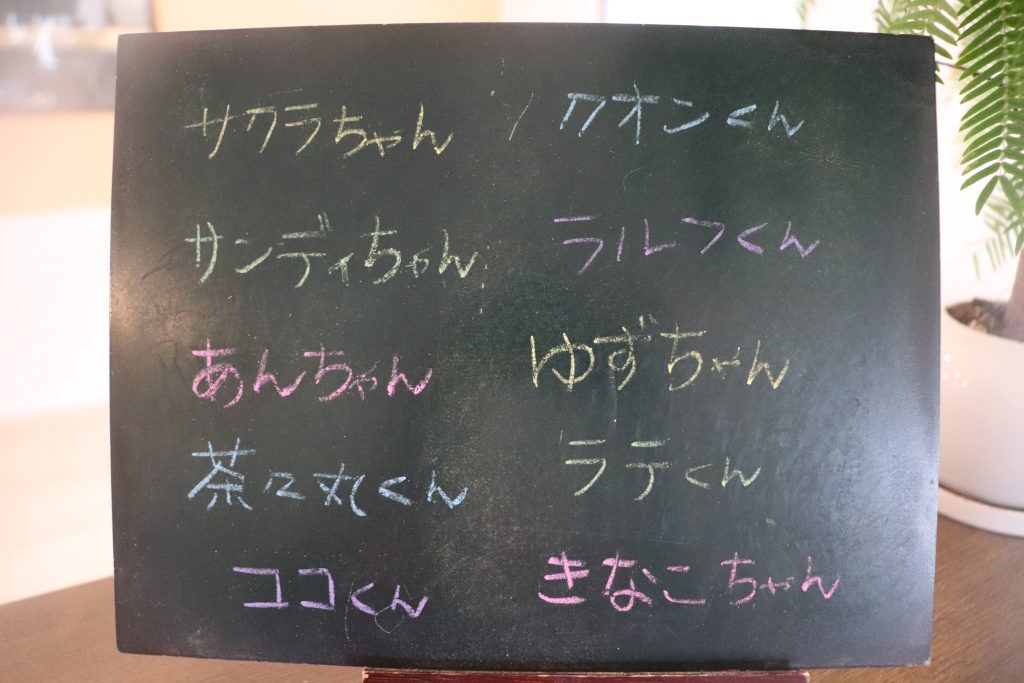 サクラちゃん
クオンくん
サンディちゃん
ラルフくん
あんちゃん
ゆずちゃん
茶々丸くん
ラテくん
ココくん
きなこちゃん